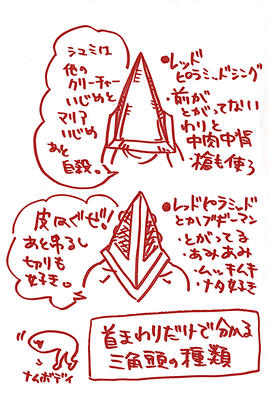 シュミは
他の
クリーチャー
いじめと
マリア
いじめ
あと
自殺。
●レッド
ピラミッドシング
・前が
とがってない
わりと
中肉中背
・槍も使う
皮はぐぜ!!
あと吊るし
切りも
好き。
●レッドピラミッド
とかブギーマン
・とがってる
・あみあみ
・ムッキムキ
・ナタ好き
ナムボディ
首まわりだけで分かる
三角頭の種類